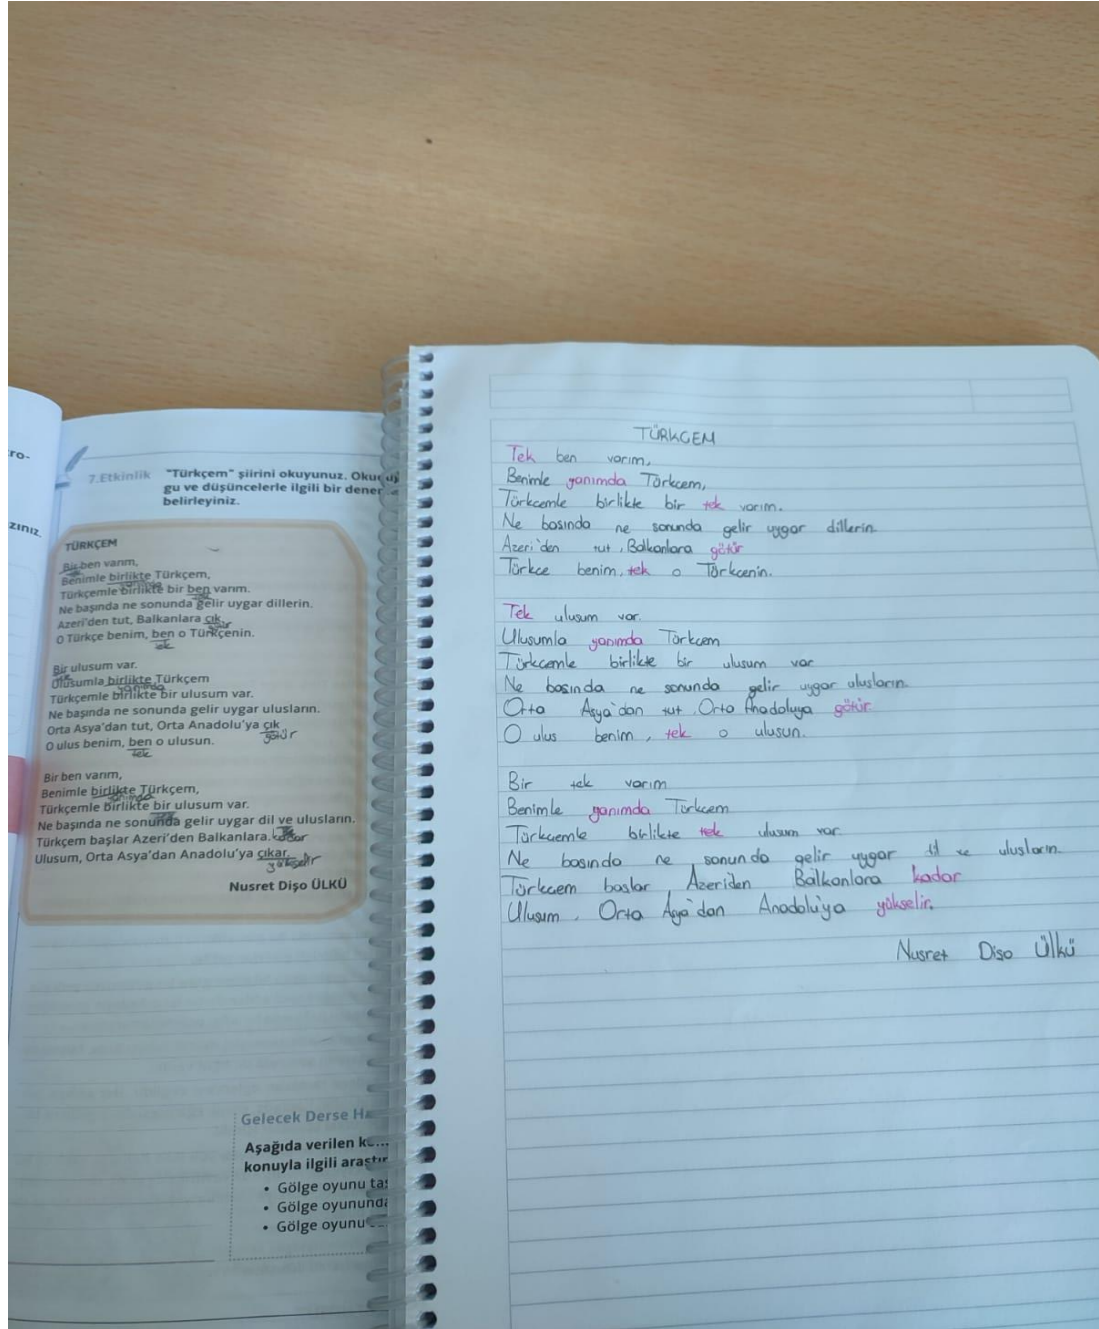 ro-
zınız.
7.Etkinlik "Türkçem" şiirini okuyunuz. Oku
gu ve düşüncelerle ilgili bir dener
belirleyiniz.
TÜRKÇEM
Bir ben varım,
Benimle birlikte Türkçem,
yanımda
Türkçemle birlikte bir ben varım.
tek
Ne başında ne sonunda gelir uygar dillerin.
Azeri'den tut, Balkanlara çık
götür
O Türkçe benim, ben o Türkçenin.
tek
Bir ulusum var.
tek
Ulusumla birlikte Türkçem
yanımda
Türkçemle birlikte bir ulusum var.
Ne başında ne sonunda gelir uygar ulusların.
Orta Asya'dan tut, Orta Anadolu'ya çık
götür
O ulus benim, ben o ulusun.
tek
Bir ben varım,
Benimle birlikte Türkçem,
yanımda
Türkçemle birlikte bir ulusum var.
Ne başında ne sonunda gelir uygar dil ve ulusların.
Türkçem başlar Azeri'den Balkanlara. kadar
Ulusum, Orta Asya'dan Anadolu'ya çıkar.
yükselir
Nusret Dişo ÜLKÜ
Gelecek Derse Ha
Aşağıda verilen k
konuyla ilgili araştır
• Gölge oyunu tas
• Gölge oyununda
• Gölge oyunu
TÜRKCEM
Tek ben varım,
Benimle yanımda Türkcem,
Türkcemle birlikte bir tek varım.
Ne basında ne sonunda gelir uygar dillerin.
Azeri'den tut, Balkanlara götür
Türkce benim, tek o Türkcenin.
Tek ulusum var.
Ulusumla yanımda Türkcem
Türkcemle birlikte bir ulusum var
Ne basında ne sonunda gelir uygar ulusların.
Orta Asya'dan tut, Orta Anadoluya götür
O ulus benim, tek o ulusun.
Bir tek varım
Benimle yanımda Türkcem
Türkcemle birlikte tek ulusum var.
Ne basında ne sonunda gelir uygar ve ulusların.
Türkcem baslar Azeriden Balkanlara kadar
Ulusum, Orta Asya'dan Anadolu'ya yükselir.
Nusret Diso Ülkü